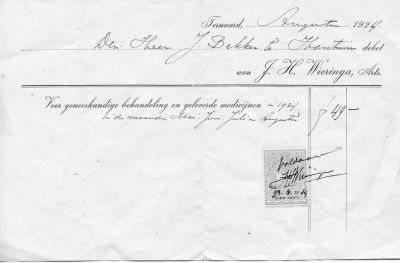 Ternaard, Augustus 1924.
Den Heer J. Bekker te Hantum debet
aan J. H. Wieringa, Arts.
Voor geneeskundige behandeling en geleverde medicijnen in 1924 ƒ 49 —
in de maanden Mei, Juni, Juli en Augustus
Voldaan
JHWieringa
24
TIEN CENT